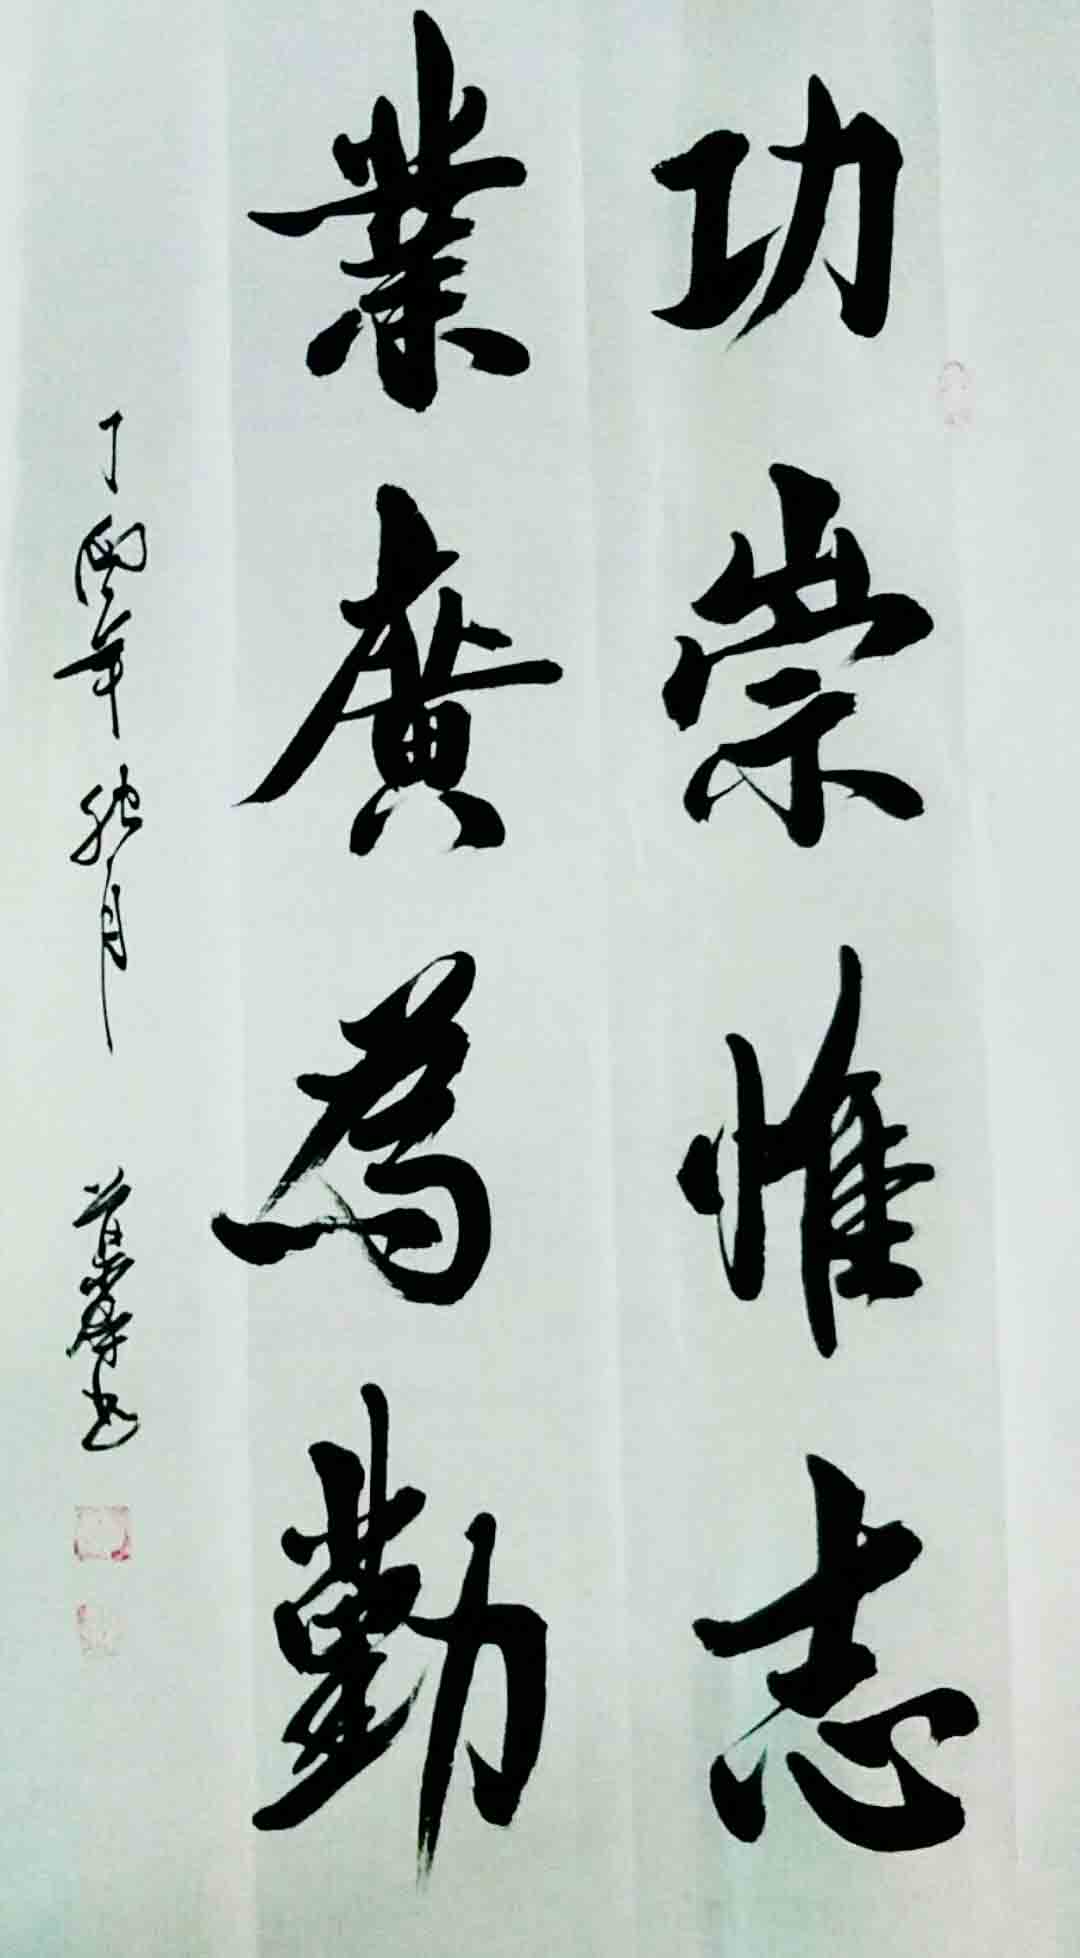 功崇惟志
業廣為勤
丁酉年秋月